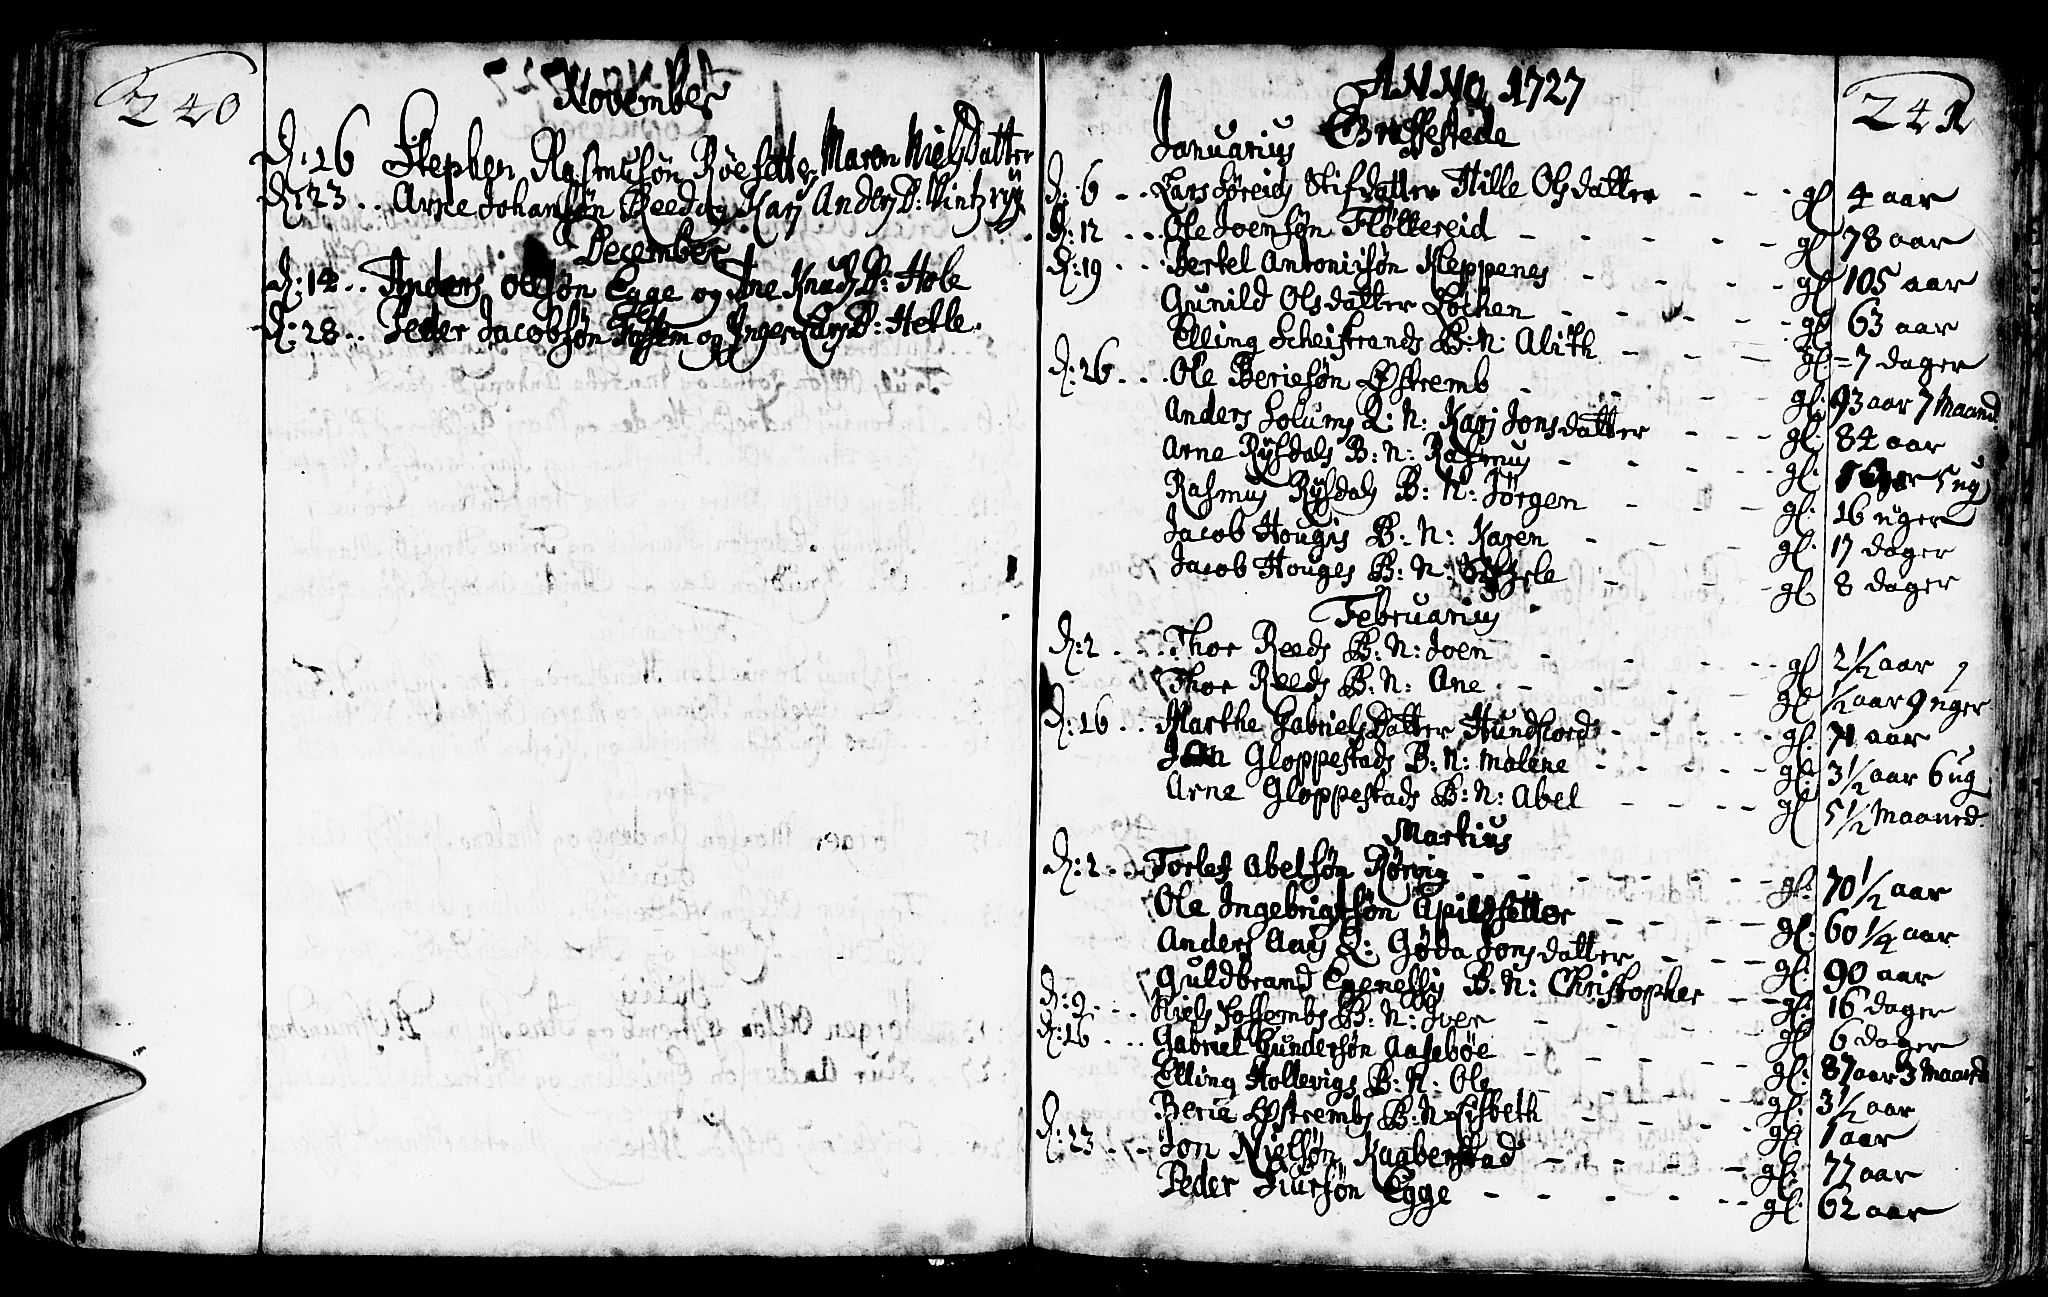 240
November
d: 16 Stephen Rasmusøn Røesette Maren NielsDatter
d: 23 .. Arne Johansøn Reed og Kari Anders D: Vintzryg
December
d: 14 .. Anders Olsøn Egge og Ane Knuds D: Hole
d: 28 .. Peder Jacobsøn Fossem og Inger Lars D: Helle
241
ANNO 1727
Januarius Graffestede
d: 6 Lars Søreids Stifdatter Hille Olsdatter - - - gl 4 aar
d: 12 Ole Joensøn Fløttereid - - - gl 78 aar
d: 19 Bertel Antoniisøn Kleppenes - - gl 105 aar
Gunild Olsdatter Løchen - - - gl 63 aar
Elling Scheistrands B: N: Alith - - gl = 7 dager
d: 26 Ole Beriesøn Løstremb - - - gl: 93 aar 7 Maaned
Anders Solums Q: N: Kari Jonsdatter - - gl: 84 aar
Arne Rysdals B: N: Rasmus - - - gl: 5 ug
Rasmus Rysdals B: N: Jørgen - - - gl: 16 uger
Jacob Hougis B: N: Karen - - - gl: 17 dager
Jacob Houges B: N: - - - gl 8 dager
Februarius
d: 2 Thor Reeds B: N: Joen - - - gl 2 1/2 aar
Thor Reeds B: N: Ane - - - gl 1/2 aar 9 uger
d: 16 Marthe GabrielsDatter Hundsord - - - gl: 71 aar
Gloppestads B: N: Malene - - - gl: 3 1/2 aar 6 ug
Arne Gloppestads B: N: Abel - - - gl 5 1/2 Maaned.
Martius
d: 2 Torlef Abelsøn Rørvig - - - gl: 70 1/2 aar
Ole Ingebrigtsøn Apildsetter - - - gl: 60 1/4 aar
Anders Aars Q: Gøda Jonsdatter - - - gl: 90 aar
Guldbrand Egenessis B. N: Christopher - - gl: 16 dager
d: 9 Niels Fossembs B: N: Iver - - - gl 6 dager
d: 16 Gabriel Gundersøn Aasebøe - - - gl: 87 aar 3 Maaned
Elling Hollevigs B: N: Ole - - - gl: 3 1/2 aar
Berie Løstrembs B: N: Lisbeth - - - gl: 1 aar
d: 23 Jon Nielsøn Kaaberstad - - - gl: 77 aar
Peder Siursøn Egge - - - gl: 62 aar